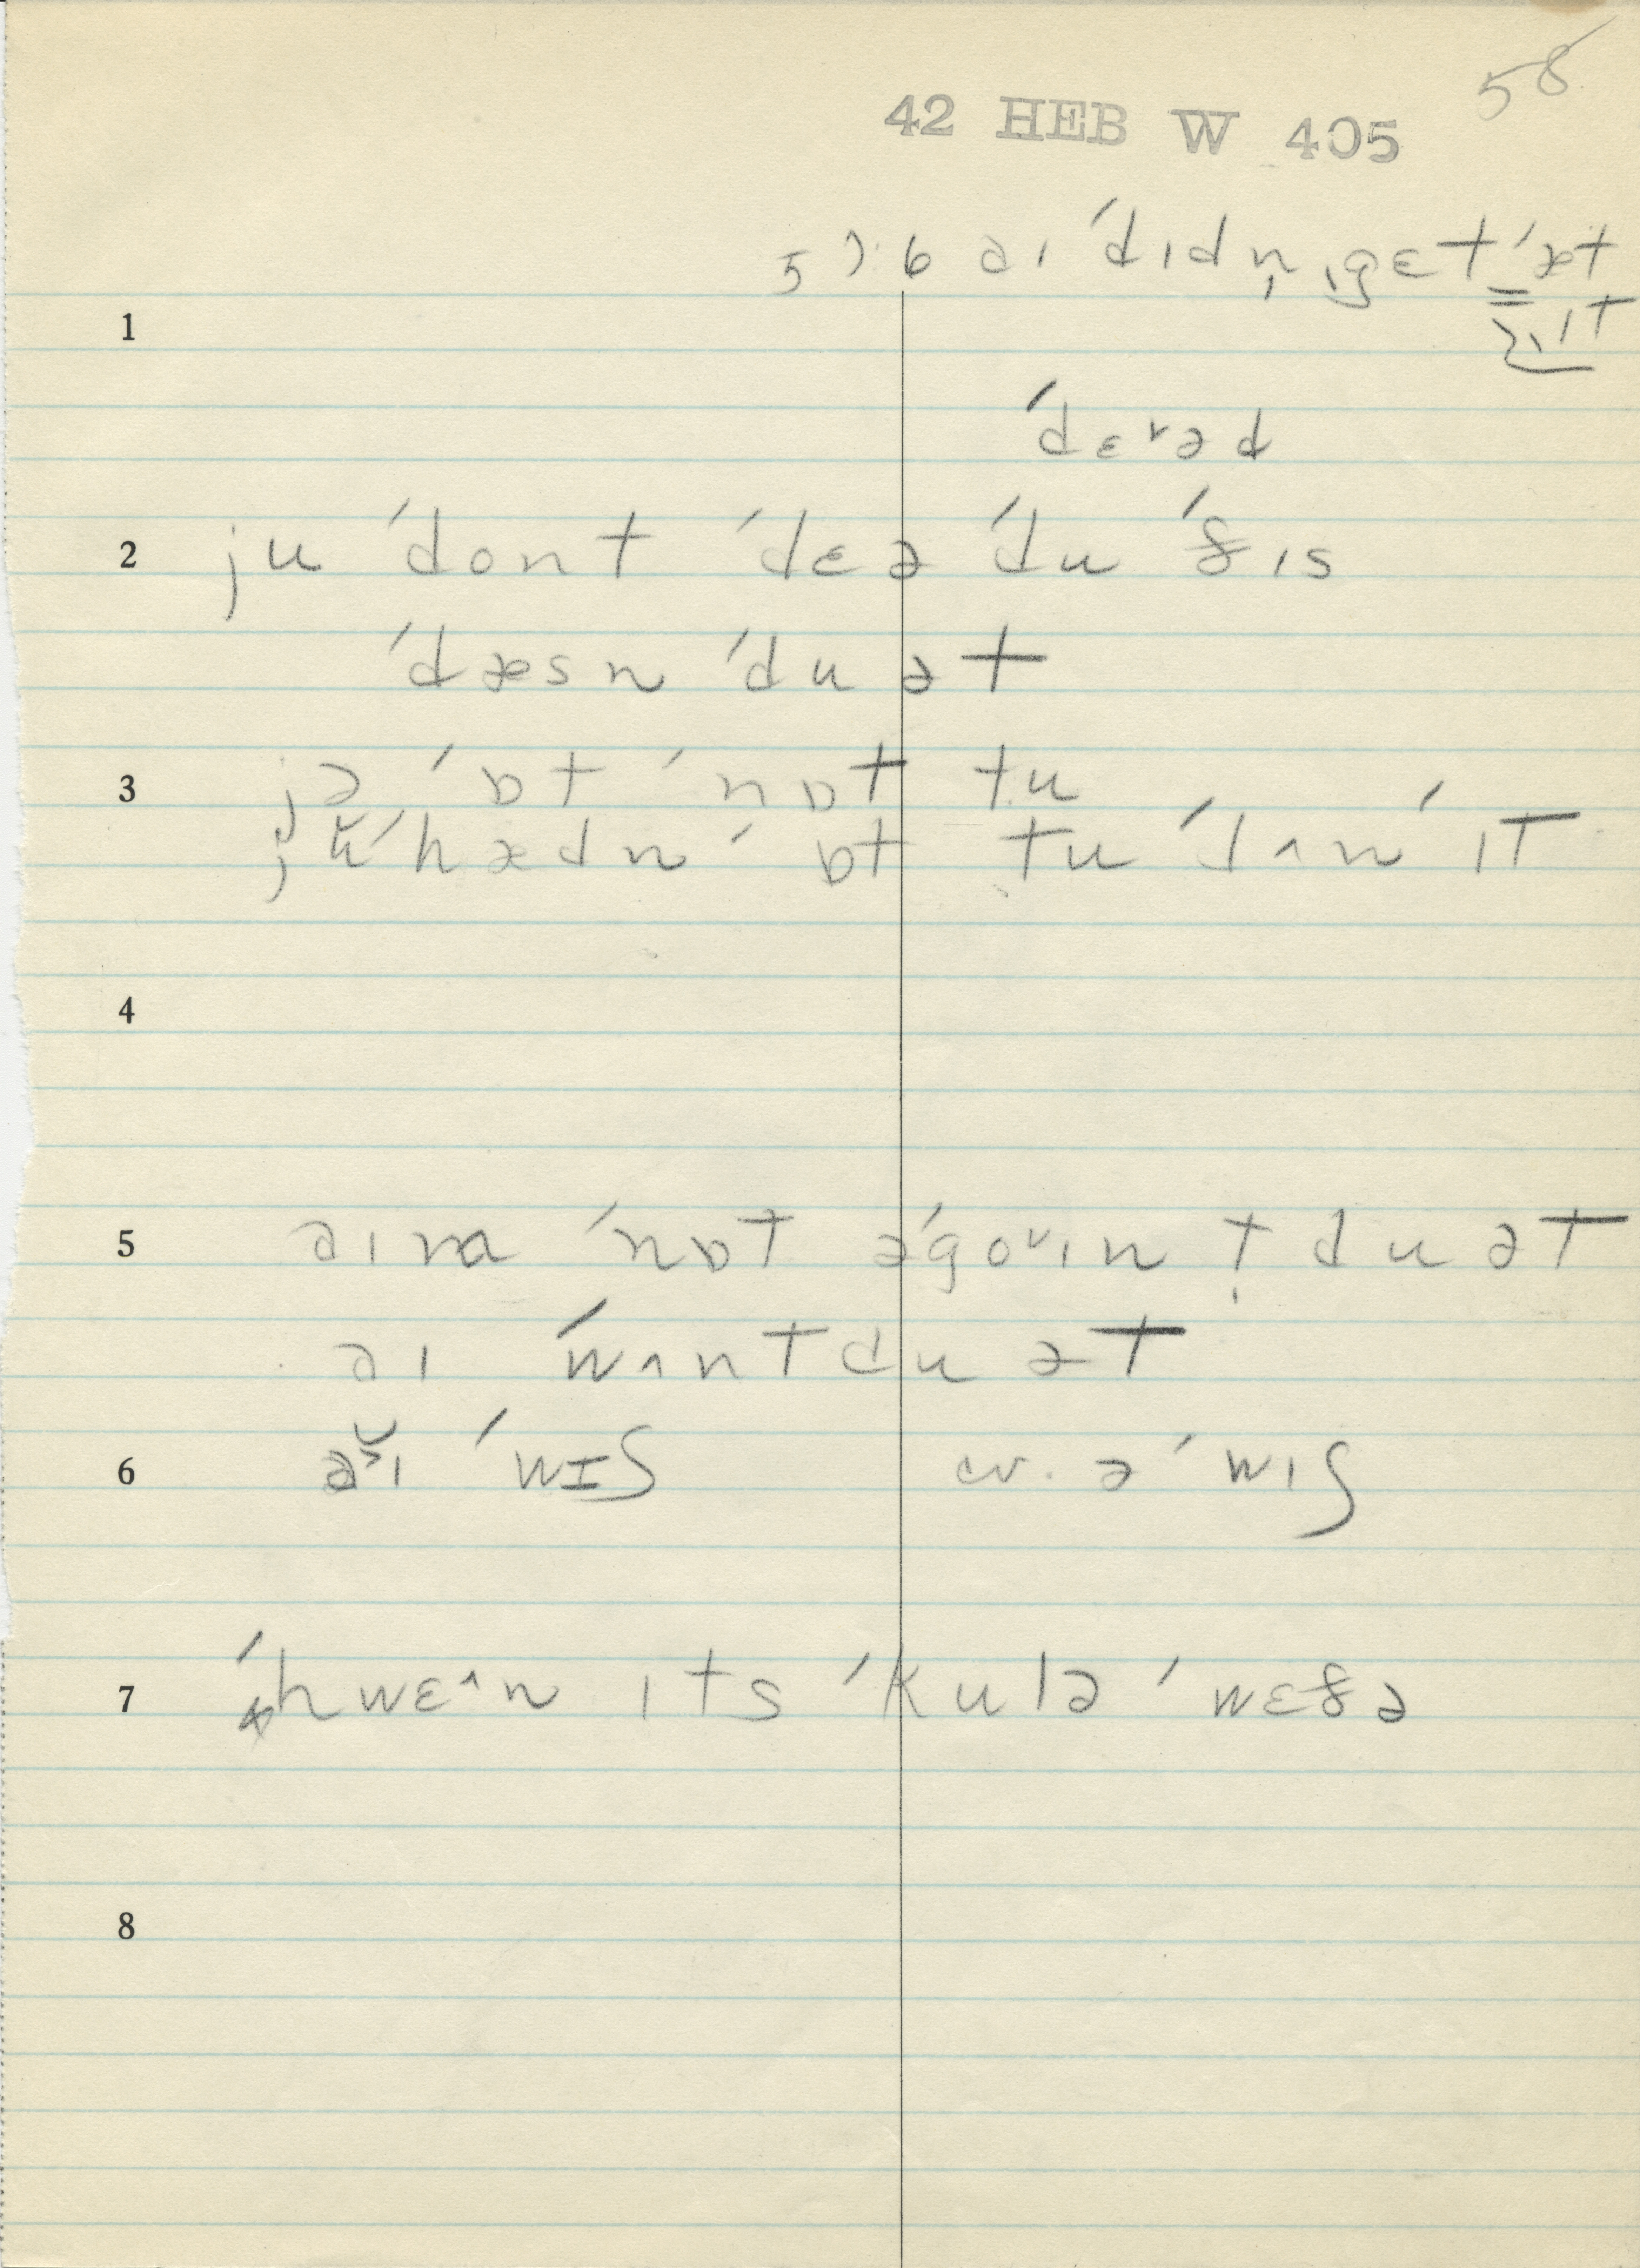 58
42 HEB W 405
57:6 əɪ ˈdɪdn̩ ˌgɛt ˈət
ɪt
1
ˈdɛrəd
2 ju ˈdont ˈdɛə ˈdu ˈðɪs
ˈdæsn ˈdu ət
3 jə ˈɒt ˈnɒt tu
jŭ ˈhædn ˈɒt tu ˈdʌn ˈɪt
4
5 əɪm ˈnɒt əˈgoᵛɪn t̩ du ət
əɪ ˈwʌnt du ət
6 əˇ̆ɪ ˈwɪʃ cv. ə ˈwɪʃ
7 ˈhwɛ^n ɪts ˈkulə ˈwɛðə
8